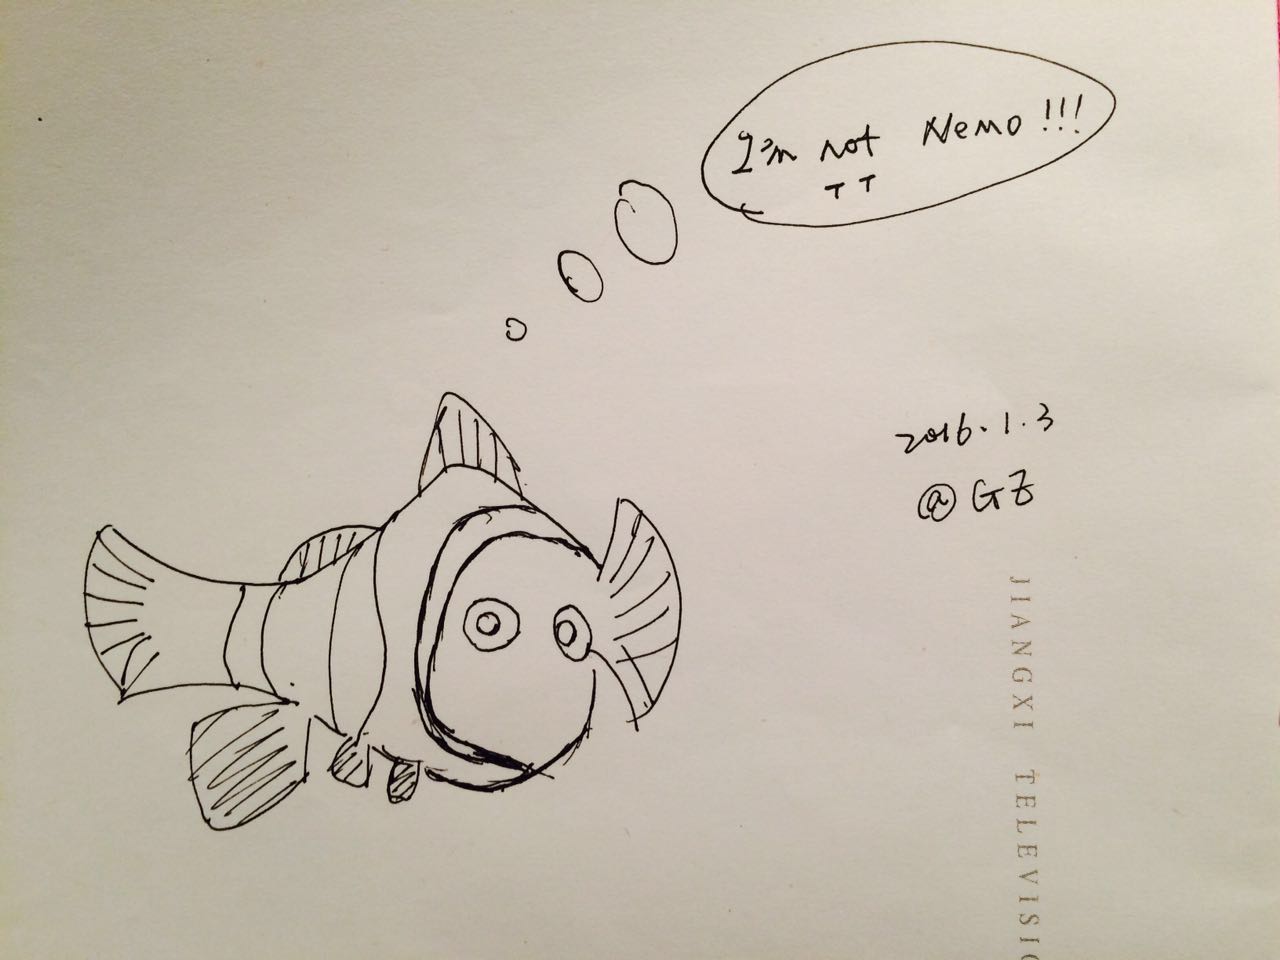 I'm not Nemo!!!
T T
2016.1.3
@GZ
JIANGXI TELEVISIO